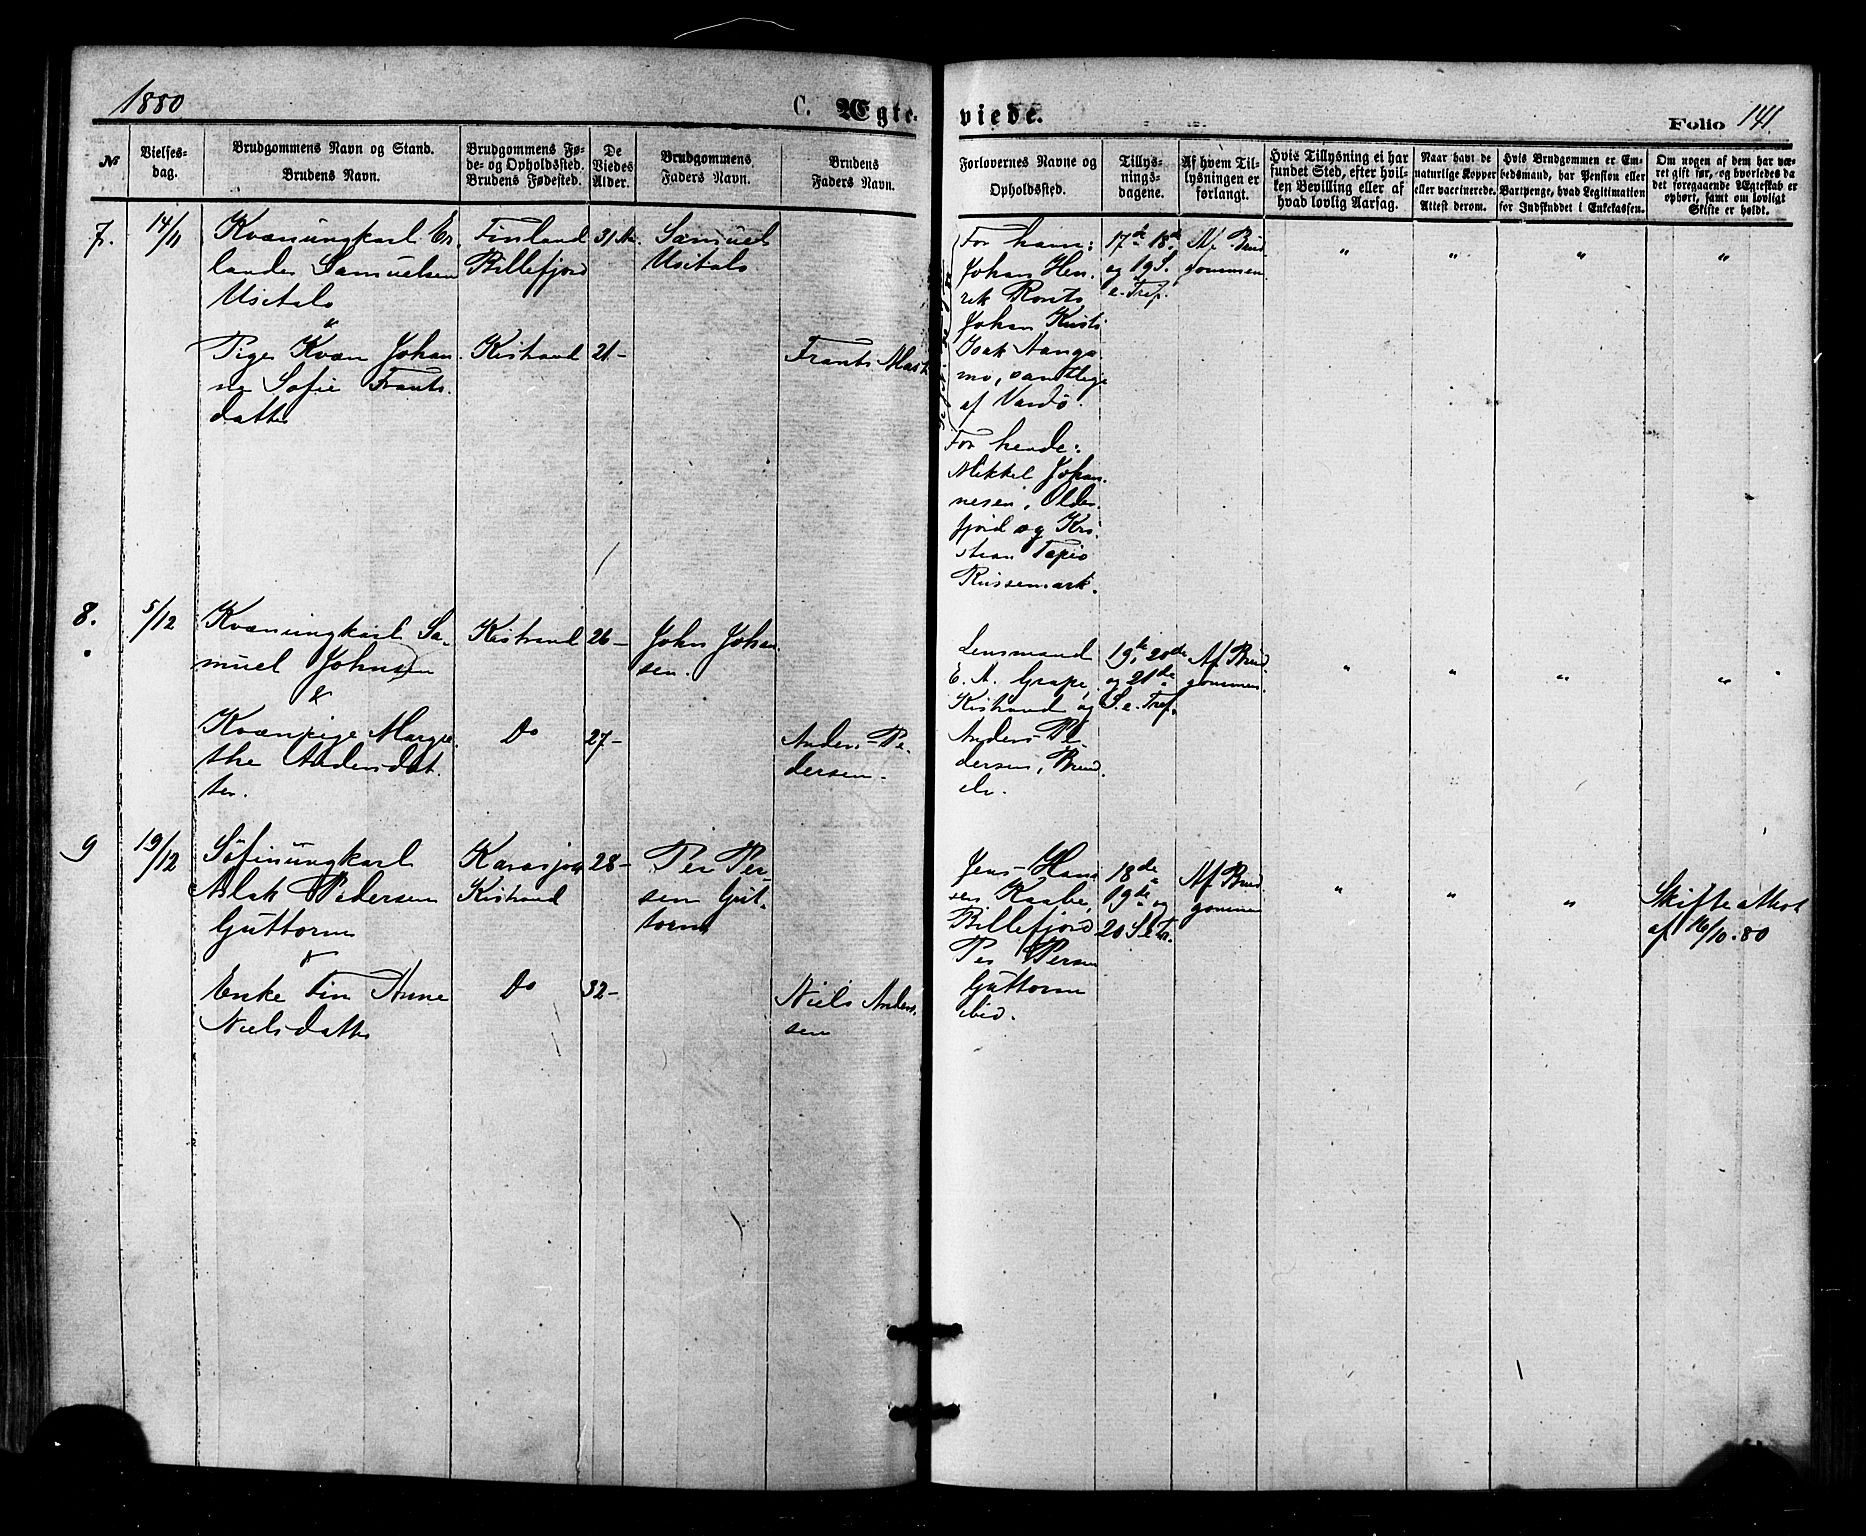 1880
C. Ægte-
viede.
Folio 141.
№
Vielses-
dag.
Brudgommens Navn og Stand.
Brudens Navn.
Brudgommens Fø-
de- og Opholdssted.
Brudens Fødested.
De
Viedes
Alder.
Brudgommens
Faders Navn.
Brudens
Faders Navn.
Forlovernes Navne og
Opholdssted.
Tillys-
nings-
dagene.
Af hvem Til-
lysningen er
forlangt.
Hvis Tillysning ei har
fundet Sted, efter hvil-
ken Bevilling eller af
hvad lovlig Aarsag.
Naar havt de
naturlige Kopper
eller vaccinerede.
Attest derom.
Hvis Brudgommen er Em-
bedsmand, har Pension eller
Vartpenge, hvad Legitimation
for Indskuddet i Enkekassen.
Om nogen af dem har væ-
ret gift før, og hvorledes da
det foregaaende Ægteskab er
ophørt, samt om lovligt
Skifte er holdt.
7.
14/11
Kvænungkarl Er-
lander Samuelsen
Usitalo
&
Pige Kvæn Johan-
ne Sofie Frants-
datter
Finland
Billefjord
Kistrand
31
21-
Samuel
Usitalo
Frants
For ham:
Johan Hen-
rik
Johan
Isak
mo, samtlige
af Vardø.
For hende:
Mikkel Johan-
nesen, Older-
fjord og Kri-
stian Tapio
Russemark.
17de 18de
og 19 S.
e. Tref.
Af Brud-
gommen
" " " "
8.
5/12
Kvænungkarl Sa-
muel Johnsen
&
Kvænpige Margre-
the Andersdat-
ter.
Kistrand
Do
26-
27-
John Johan-
sen.
Anders Pe-
dersen.
Lensmand
E. A. Grape,
Kistrand og
Anders Pe-
dersen,
19de, 20de
og 21de
S. e. Tref.
Af Brud-
gommen.
" " " "
9
19/12
Søfinungkarl
Aslak Pedersen
Guttorm
&
Enke Fin Anne
Nielsdatter
Karasjok
Kistrand
Do
28-
32-
Per Per-
sen Gut-
torm
Niels Ander-
sen
Jens Han-
sen Kaabe,
Billefjord
Per Persen
Guttorm
ibid.
18de
19de og
20 S e Tr.
Af Brud-
gommen
" " "
Skifteattest
af 16/10 80